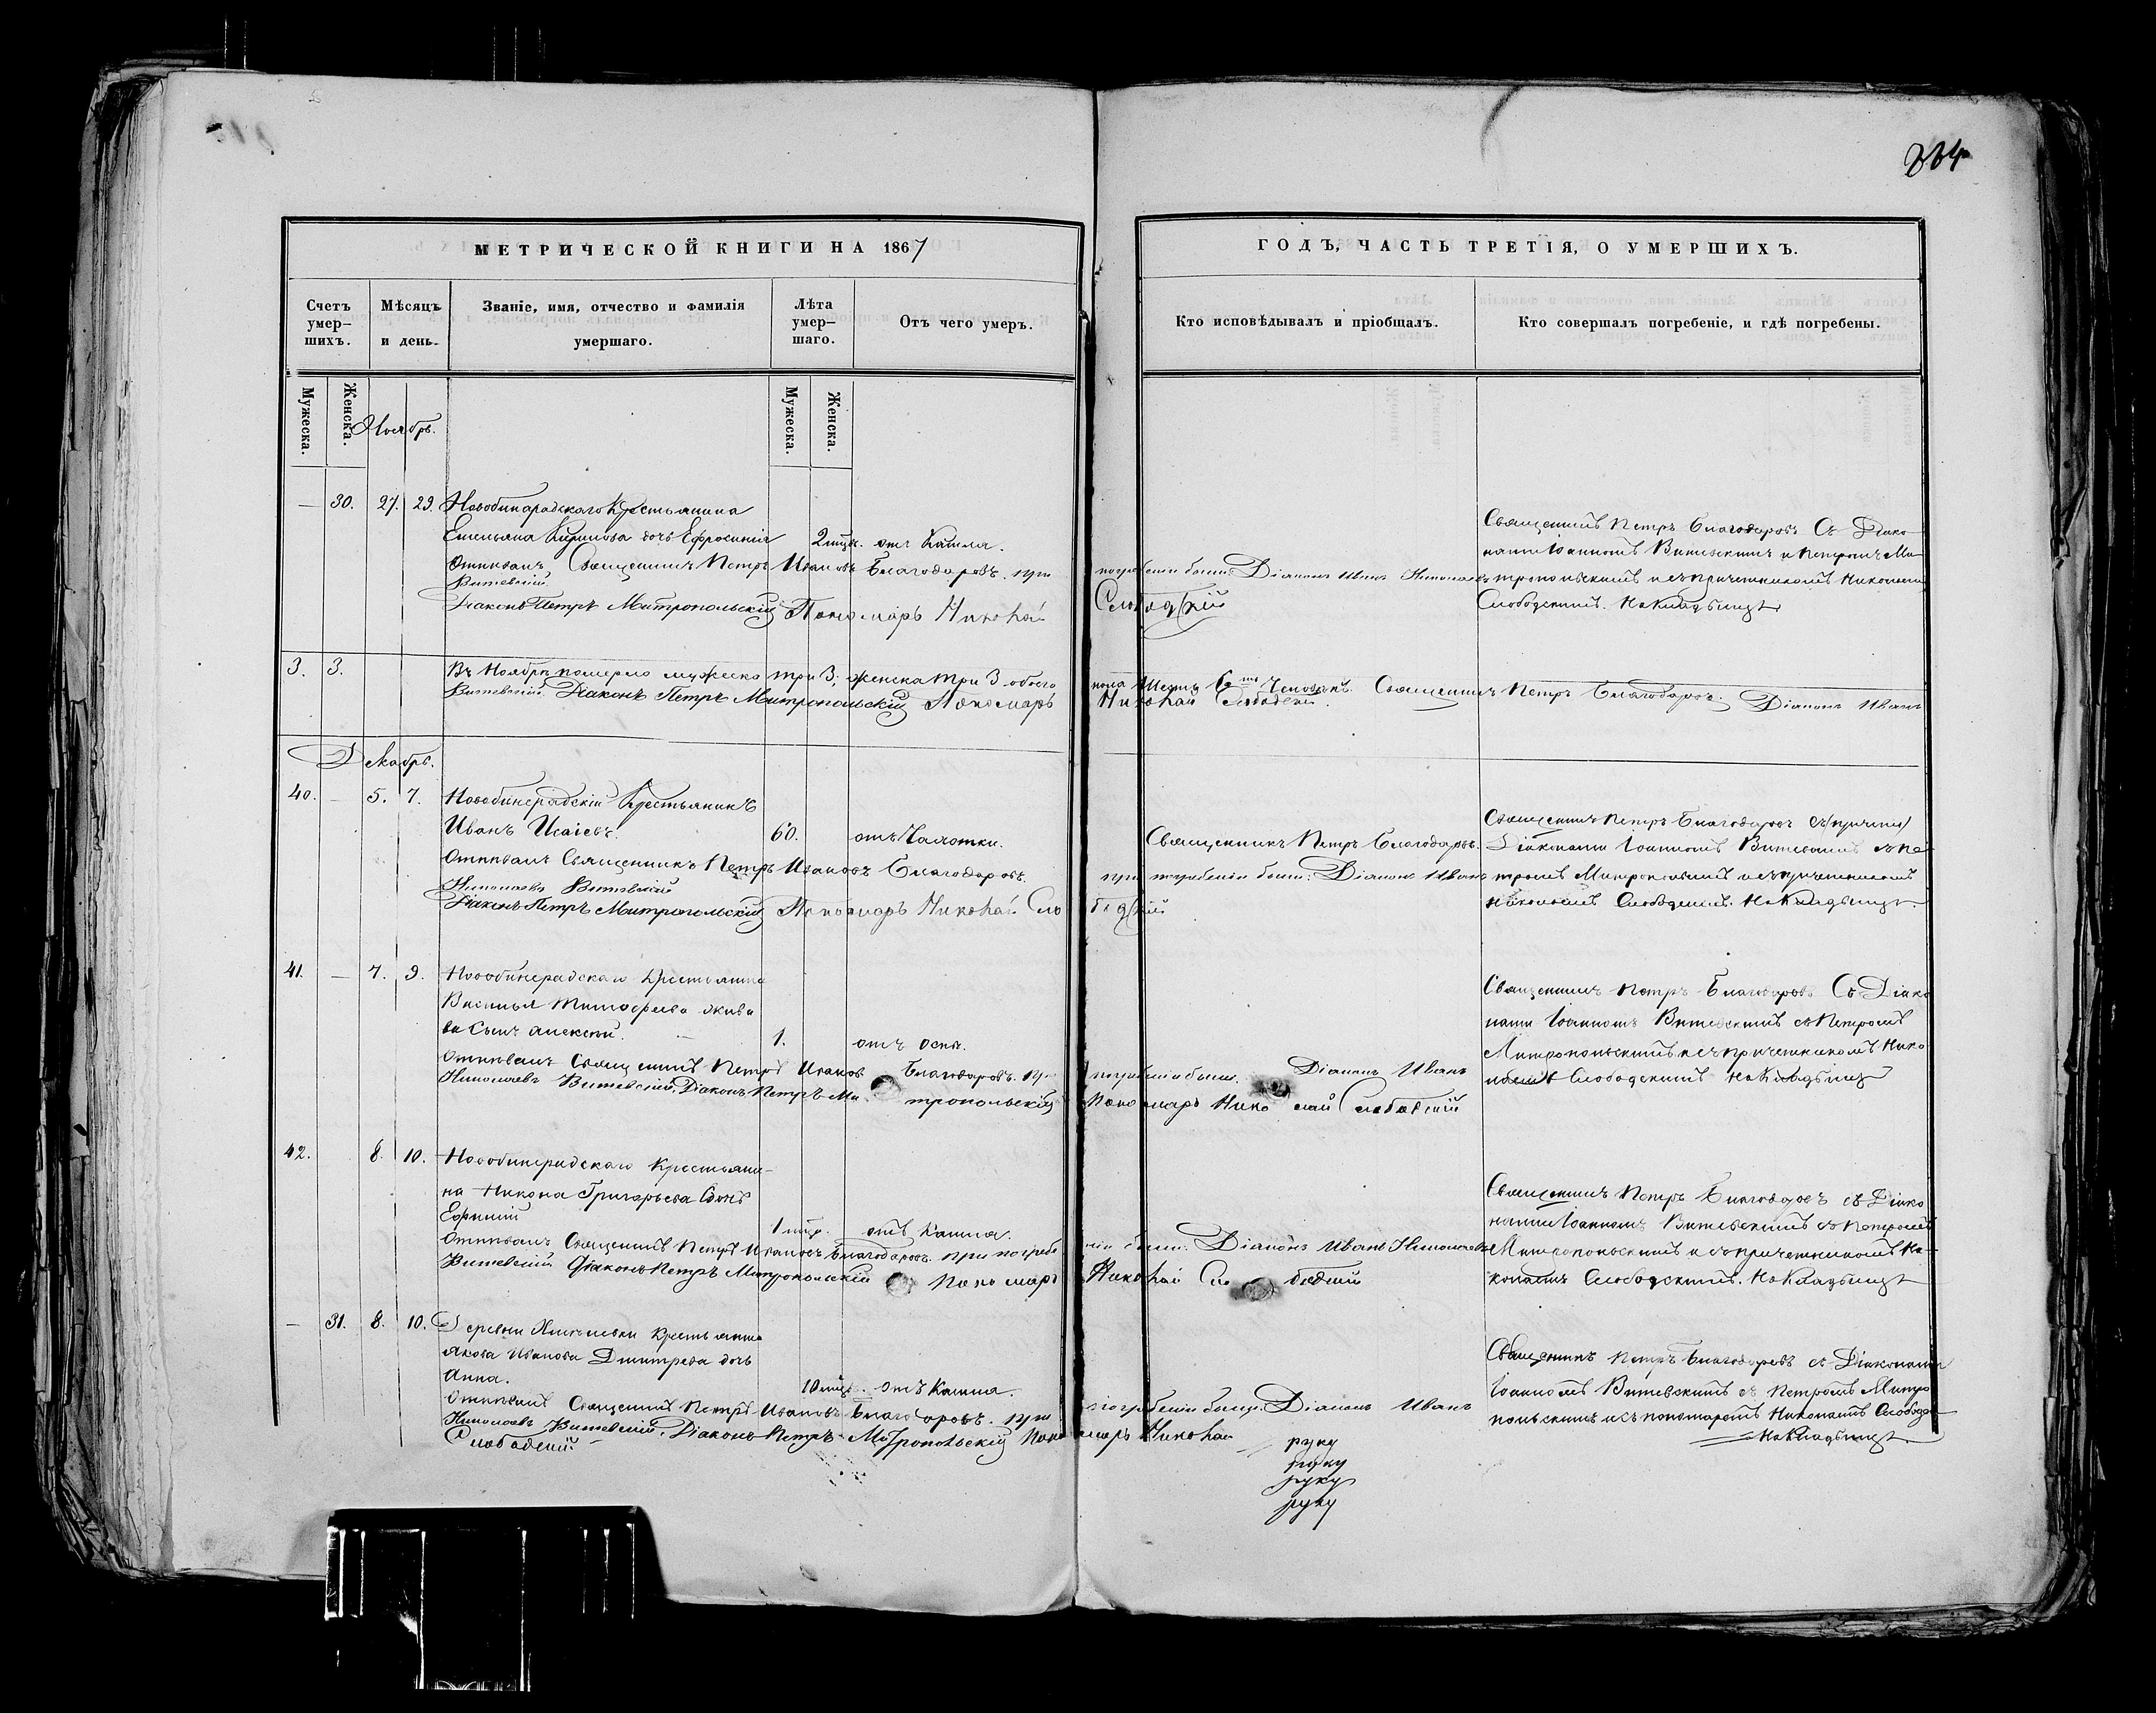 364
МЕТРИЧЕСКОЙ КНИГИ НА 1867
ГОДЪ, ЧАСТЬ ТРЕТІЯ, О УМЕРШИХЪ.
Счетъ умер-шихъ.
Мѣсяцъ и день.
Званіе, имя, отчество и фамилія умершаго.
Лѣта умер-шаго.
Отъ чего умеръ.
Кто исповѣдывалъ и пріобщалъ.
Кто совершалъ погребеніе, и гдѣ погребены.
Мужеска.
Женска.
Мужеска.
Женска.
Ноябрь.
— 30. 27. 29. Новобинарадскаго Крестьянина
Емельяна Кирилова дочь Ефросинія 2 мцв. отъ Кашля.
Отпѣвалъ Священникъ Петръ Ивановъ Благодаровъ. при погребеніи были: Діаконъ Иванъ Николаевъ
Витевскій.
Діаконъ Петръ Митропольскій Пономарь Николай Слободскій
Священникъ Петръ Благодаровъ Съ Діако-
нами Іоанномъ Витевскимъ и Петромъ Ми-
тропольскимъ и съ причетникомъ Николаемъ
Слободскимъ. На Кладбищѣ
3. 3. Въ Ноябрѣ померло мужеска три 3; женска три 3 обоего пола Шесть 6ть Человѣкъ. Священникъ Петръ Благодаровъ. Діаконъ Иванъ
Витевскій. Діаконъ Петръ Митропольскій Пономарь Николай Слободскій.
Декабрь.
40. — 5. 7. Новобинерадскій Крестьянинъ
Иванъ Исаіевъ. 60. отъ Чахотки. Священникъ Петръ Благодаровъ.
Отпѣвалъ Священникъ Петръ Ивановъ Благодаровъ. при погребеніи были: Діаконъ Иванъ
Николаевъ Витевскій
Діаконъ Петръ Митропольскій Пономарь Николай Слободскій
Священникъ Петръ Благодаровъ
Діаконами Іоанномъ Витевскимъ съ Пе-
тромъ Митропольскимъ и съ причетникомъ
Николаемъ Слободскимъ. На Кладбищѣ.
41. — 7. 9. Новобинерадскаго Крестьянина
Василья Тимофеева
сынъ Алексѣй. — 1. отъ оспы.
Отпѣвалъ Священникъ Петръ Ивановъ Благодаровъ. при погребеніи были. Діаконъ Иванъ
Николаевъ Витевскій, Діаконъ Петръ Митропольскій Пономарь Николай Слободскій
Священникъ Петръ Благодаровъ Съ Діако-
нами Іоанномъ Витевскимъ съ Петромъ
Митропольскимъ и съ причетникомъ Нико-
лаемъ Слободскимъ На Кладбищѣ
42. 8. 10. Новобинерадскаго Крестьяни-
на Никона Григорьева Сынъ
1 мцъ. отъ Кашля.
Отпѣвалъ Священникъ Петръ Ивановъ Благодаровъ. при погребеніи были: Діаконъ Иванъ Николаевъ
Витевскій Діаконъ Петръ Митропольскій Пономарь Николай Слободскій
Священникъ Петръ Благодаровъ съ Діако-
нами Іоанномъ Витевскимъ съ Петромъ
Митропольскимъ и съ причетникомъ Ни-
колаемъ Слободскимъ. На Кладбищѣ
— 31. 8. 10. Деревни Крестьянина
Якова Иванова Дмитрева дочь
Анна. 10 мцв. отъ Кашля.
Отпѣвалъ Священникъ Петръ Ивановъ Благодаровъ. при погребеніи были: Діаконъ Иванъ
Николаевъ Витевскій, Діаконъ Петръ Митропольскій Пономарь Николай
Слободскій
Священникъ Петръ Благодаровъ съ Діаконами
Іоанномъ Витевскимъ съ Петромъ Митро-
польскимъ и съ пономаремъ Николаемъ Слободс
На Кладбищѣ.
руку
руку
руку
руку